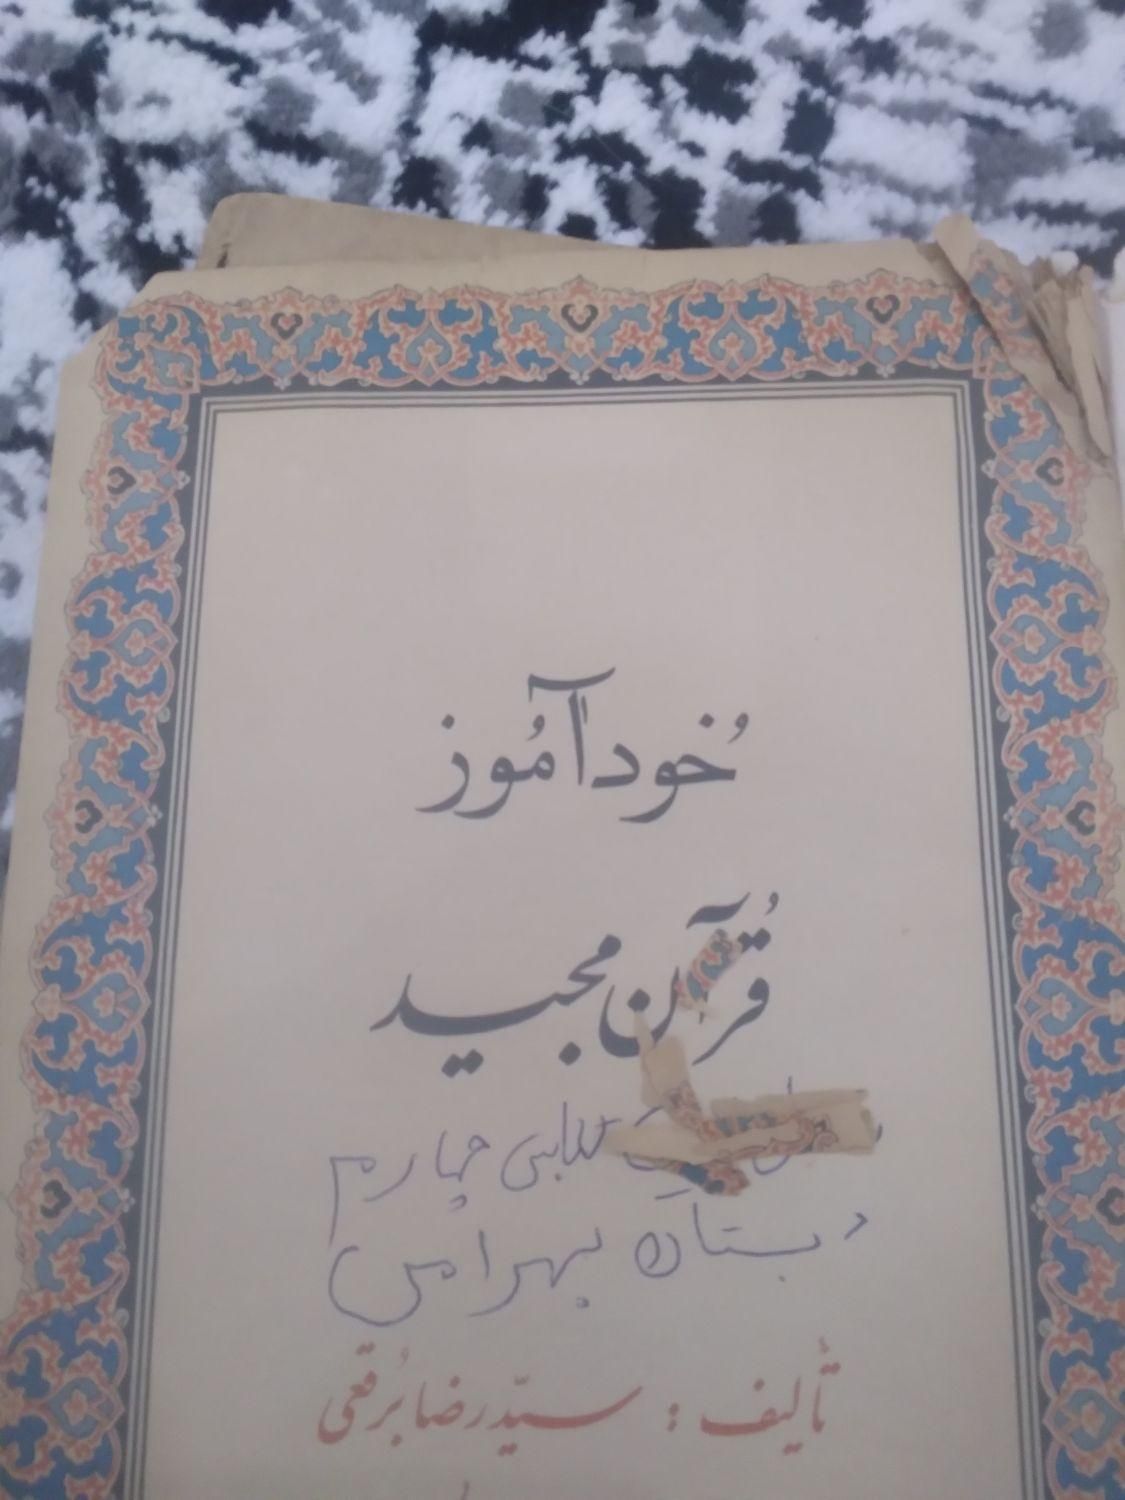 خُودآمُوز
قُرآن مجید
کلاس چهارم
دبستان بهرامی
تألیف : سیّدرضا بُرقعی